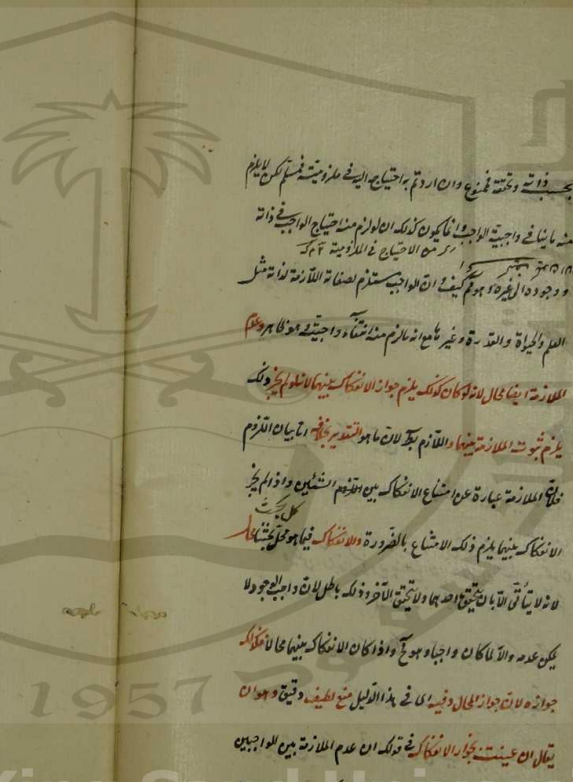 بحسب ذاته وتحققه فممنوع وان اردتم به احتياجه اليه في ملزوميته فمسلم لكن لا يلزم
منه ما ينافي واجبية الواجب وانما يكون كذلك ان لو لزم منه احتياج الواجب في ذاته
من الاحتياج في الملزومية
ووجوده الى غيره وهو مم كيف ان الواجب مستلزم لصفاته اللازمة لذاته مثل
العلم والحياة والقدرة وغيرها مع انه لا يلزم منه انتفاء واجبيته هو ظاهر وعدم
الملازمة ايضا محال لانه لو كان كذلك يلزم جواز الانفكاك بينهما لانه لو لم يجز ذلك
يلزم ثبوت الملازمة بينهما واللازم بط لان ما هو التقدير بخلافه اما بيان اللزوم
فلان الملازمة عبارة عن امتناع الانفكاك بين الشيئين واذا لم يجز
كل بحث
الانفكاك بينهما يلزم ذلك الامتناع بالضرورة والانفكاك فيما هو محل بحثنا محال
لانه لا يتأتى الا بان يتحقق احدهما ولا يتحقق الآخر وذلك باطل لان واجب الوجود لا
يمكن عدمه والا لما كان واجبا وهو مح واذا كان الانفكاك بينهما محالا فكذلك
جوازه لان جواز المحال وفيه اي في هذا الدليل منع لطيف دقيق وهو ان
يقال ان عنيت بجواز الانفكاك في قولك ان عدم الملازمة بين الواجبين
1957
King Saud